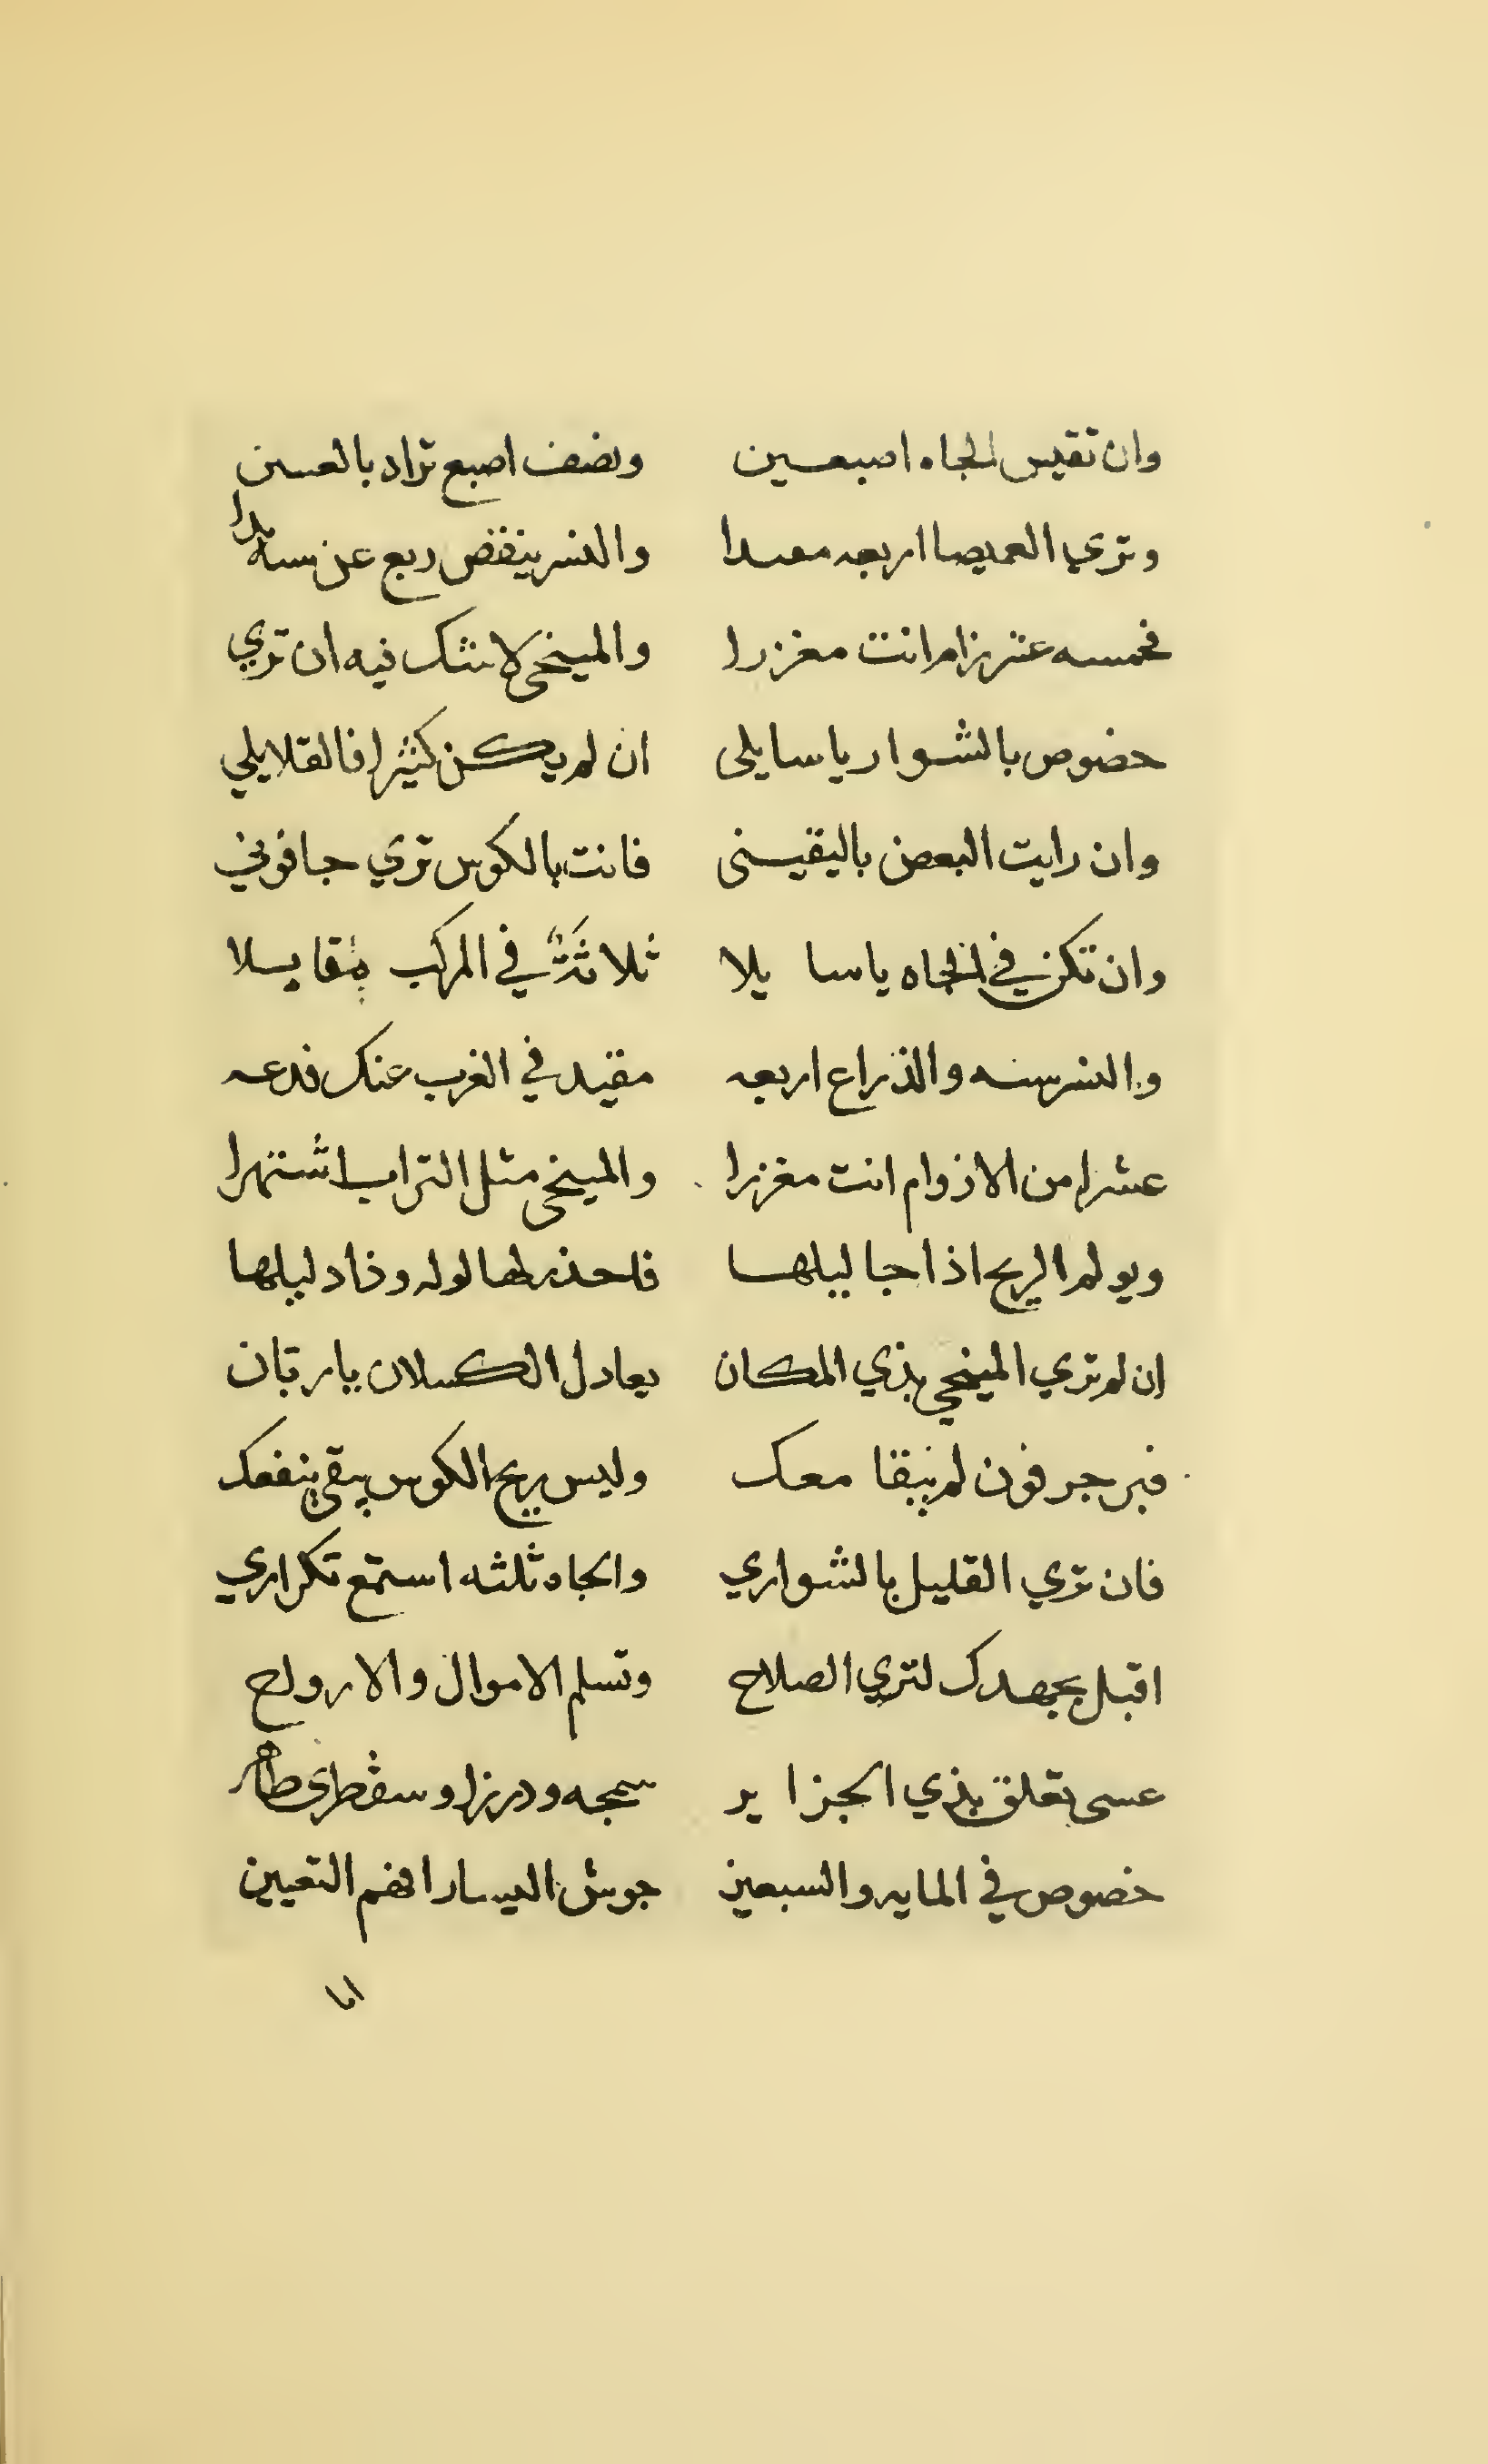 وان تقيس الجاه اصبعين ونصف اصبع تزاد بالعين
وتري الغميصا اربعه مبدا والنسر ينقض ربع عن سته بدا
فخمسه عشر زام انت مغزرا والمينخي لا شك فيه ان تري
خصوص بالشوار يا سايلي ان لم يكن كثيرا فالقلايلي
وان رايت البعض باليقيني فانت بالكوس تري جافوني
وان تكن في الجاه يا سا يلا ثلاثة في المركب مقايسلا
والنسر سته والذراع اربعه مقيد في الغرب عنك فدعه
عشرا من الازوام انت مغزرا والمينخي مثل التراب اشتهرا
ويولم الريح اذا جا ليلها فاحذر لها لوله وذا دليلها
ان لم تري المينخي بذي المكان يعادل الكسلان يا ربان
فبر جرفون لم يبقا معك وليس ريح الكوس يبقي ينفعك
فان تري القليل بالشواري والجاه ثلثه استمع تكراري
اقبل بجهدك لتري الصلاح وتسلم الاموال والارواح
عسى تعلق بذي الجزا ير سمحه ودرزا وسقطرى
خصوص في المايه والسبعين جوش اليسار افهم التعيين
اما